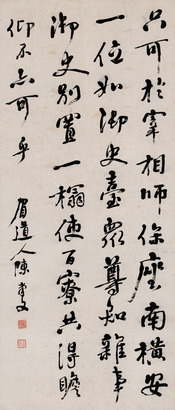 只可於宰相師保座南橫安
一位如御史臺眾尊知雜事
御史別置一榻使百寮共得瞻
仰不亦可乎 眉道人陳